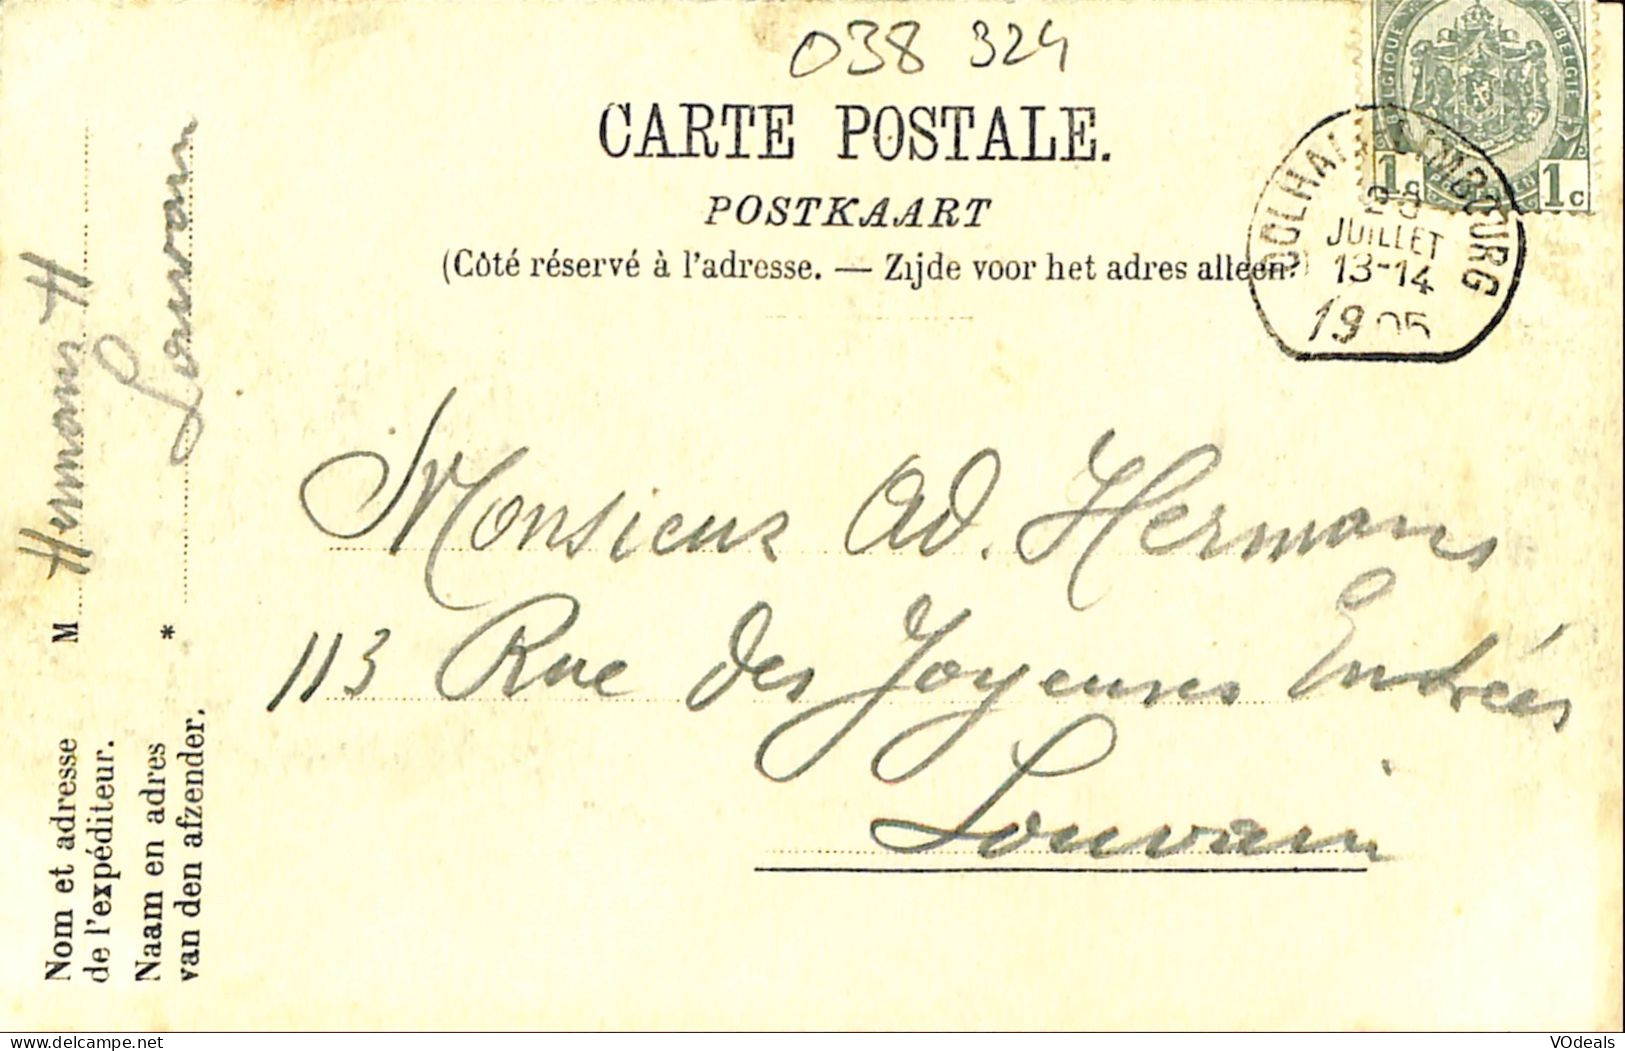 038 324
CARTE POSTALE.
POSTKAART
(Côté réservé à l'adresse. — Zijde voor het adres alleen?
BELGIQUE BELGIE
1 1c
DOLHAIN LIMBOURG
28
JUILLET
13-14
1905
Monsieur Ad. Hermans
113 Rue des Joyeuses Entrées
Louvain
Nom et adresse
de l'expéditeur.
M Hermans H
Naam en adres
van den afzender.
*
Louvain
delcampe.net
VOdeals